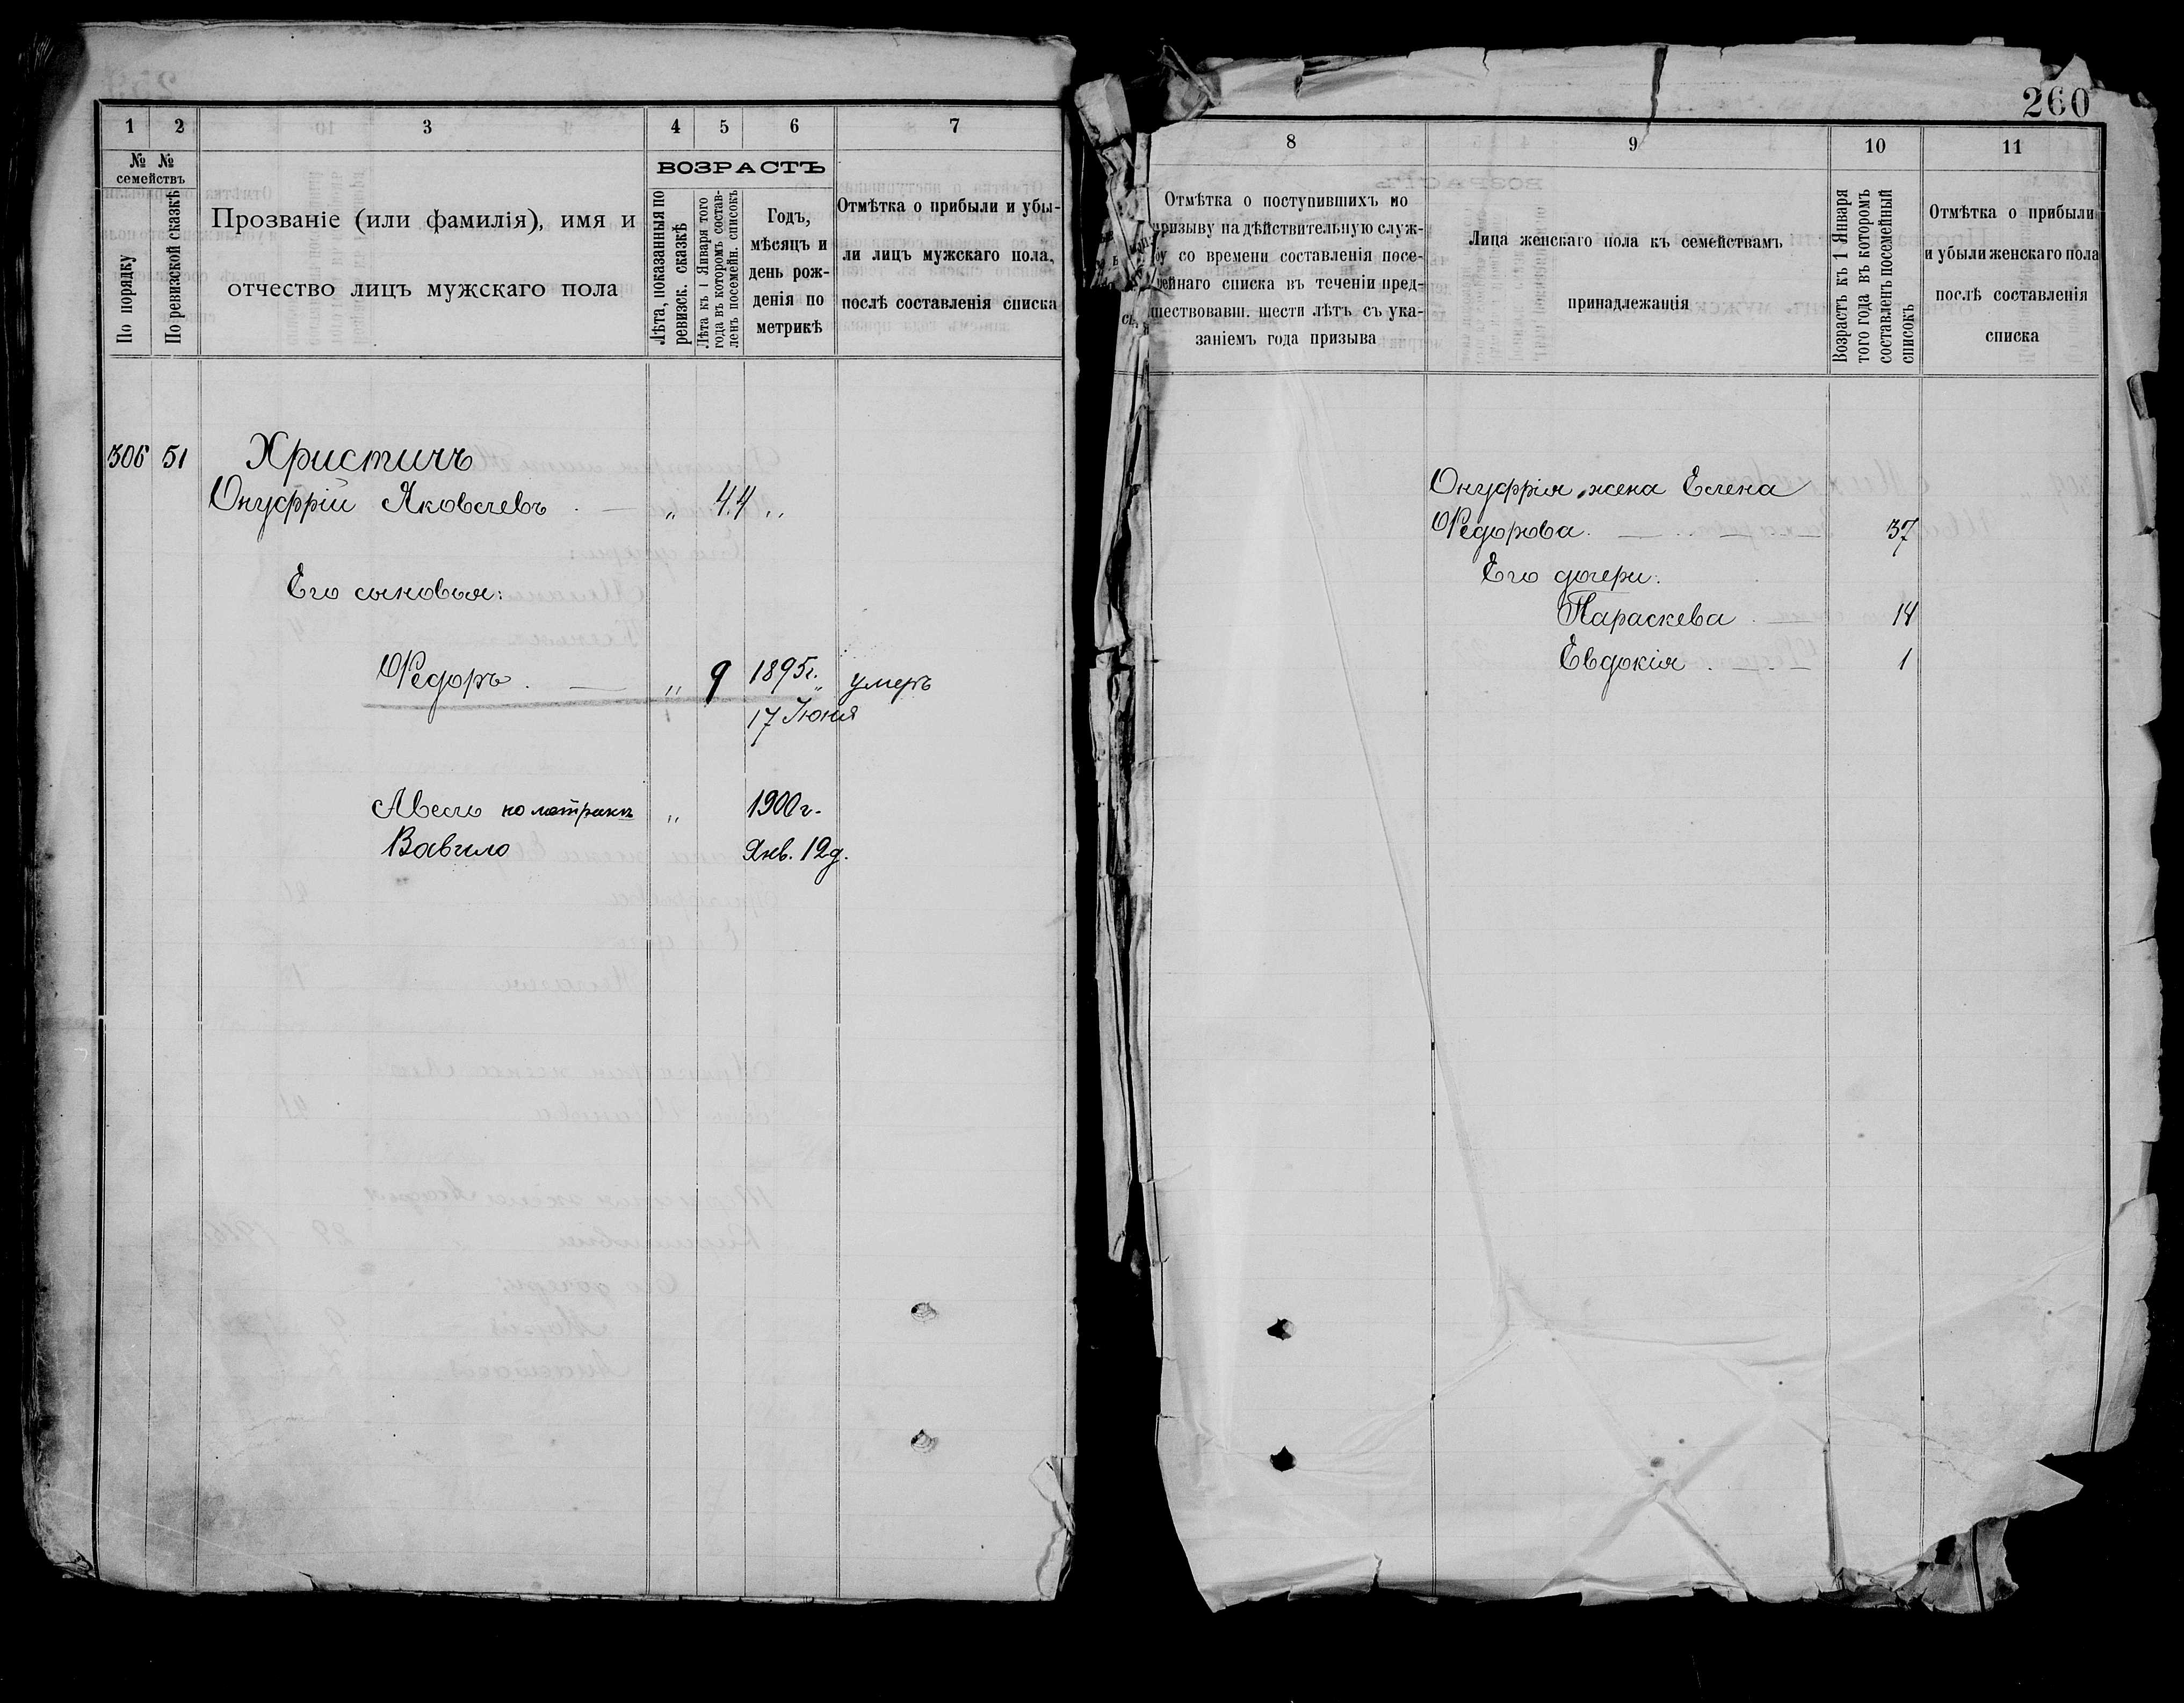 260
1 2 3 4 5 6 7
№ № семействъ
По порядку
По ревизской сказкѣ
Прозваніе (или фамилія), имя и
отчество лицъ мужскаго пола
ВОЗРАСТЪ
Лѣта, показанныя по
ревизск. сказкѣ
Лѣта къ 1 Января того
года въ которомъ состав-
ленъ посемейн. списокъ
Годъ,
мѣсяцъ и
день рож-
денія по
метрикѣ
Отмѣтка о прибыли и убы-
ли лицъ мужскаго пола,
послѣ составленія списка
306 51 Христичъ
Онуфрій Яковлевъ . — „ 44 „
Его сыновья:
Ѳедоръ . — „ 9 1895г. „ умеръ
17 Іюня
Авель по метрикѣ „ 1900г.
Вавило Янв. 12д.
8 9 10 11
Отмѣтка о поступившихъ по
призыву на дѣйствительную служ-
бу со времени составленія посе-
мейнаго списка въ теченіи пред-
шествовавш. шести лѣтъ съ ука-
заніемъ года призыва
Лица женскаго пола къ семействамъ
принадлежащія
Возрастъ къ 1 Января
того года въ которомъ
составленъ посемейный
списокъ
Отмѣтка о прибыли
и убыли женскаго пола
послѣ составленія
списка
Онуфрія жена Елена
Ѳедорова. — 37
Его дочери:
Параскева . — 14
Евдокія . — 1